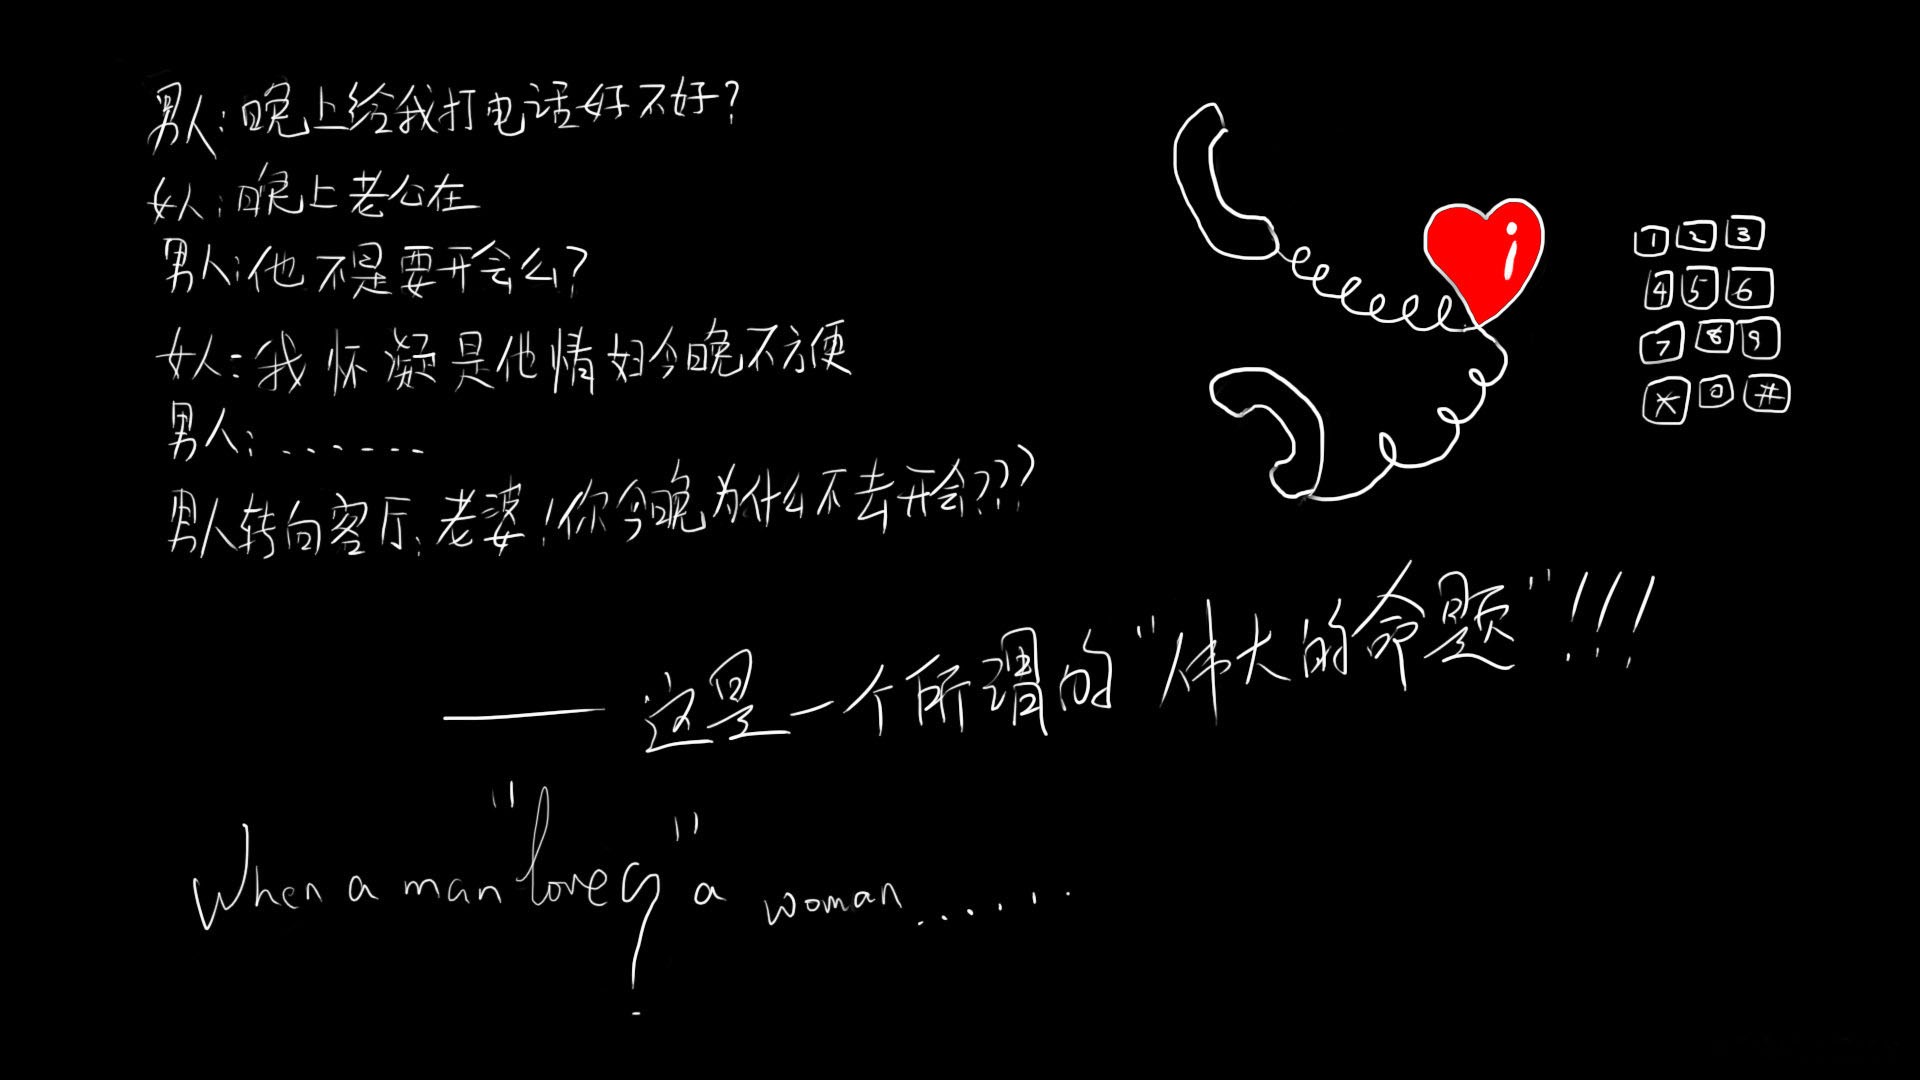 男人:晚上给我打电话好不好?
女人:晚上老公在
男人:他不是要开会么?
女人:我怀凝是他情妇今晚不方便
男人:......
男人转向客厅:老婆!你今晚为什么不去开会???
——这是一个所谓的"伟大的命题"!!!
When a man "loves" a woman......
i
1 2 3
4 5 6
7 8 9
* 0 #